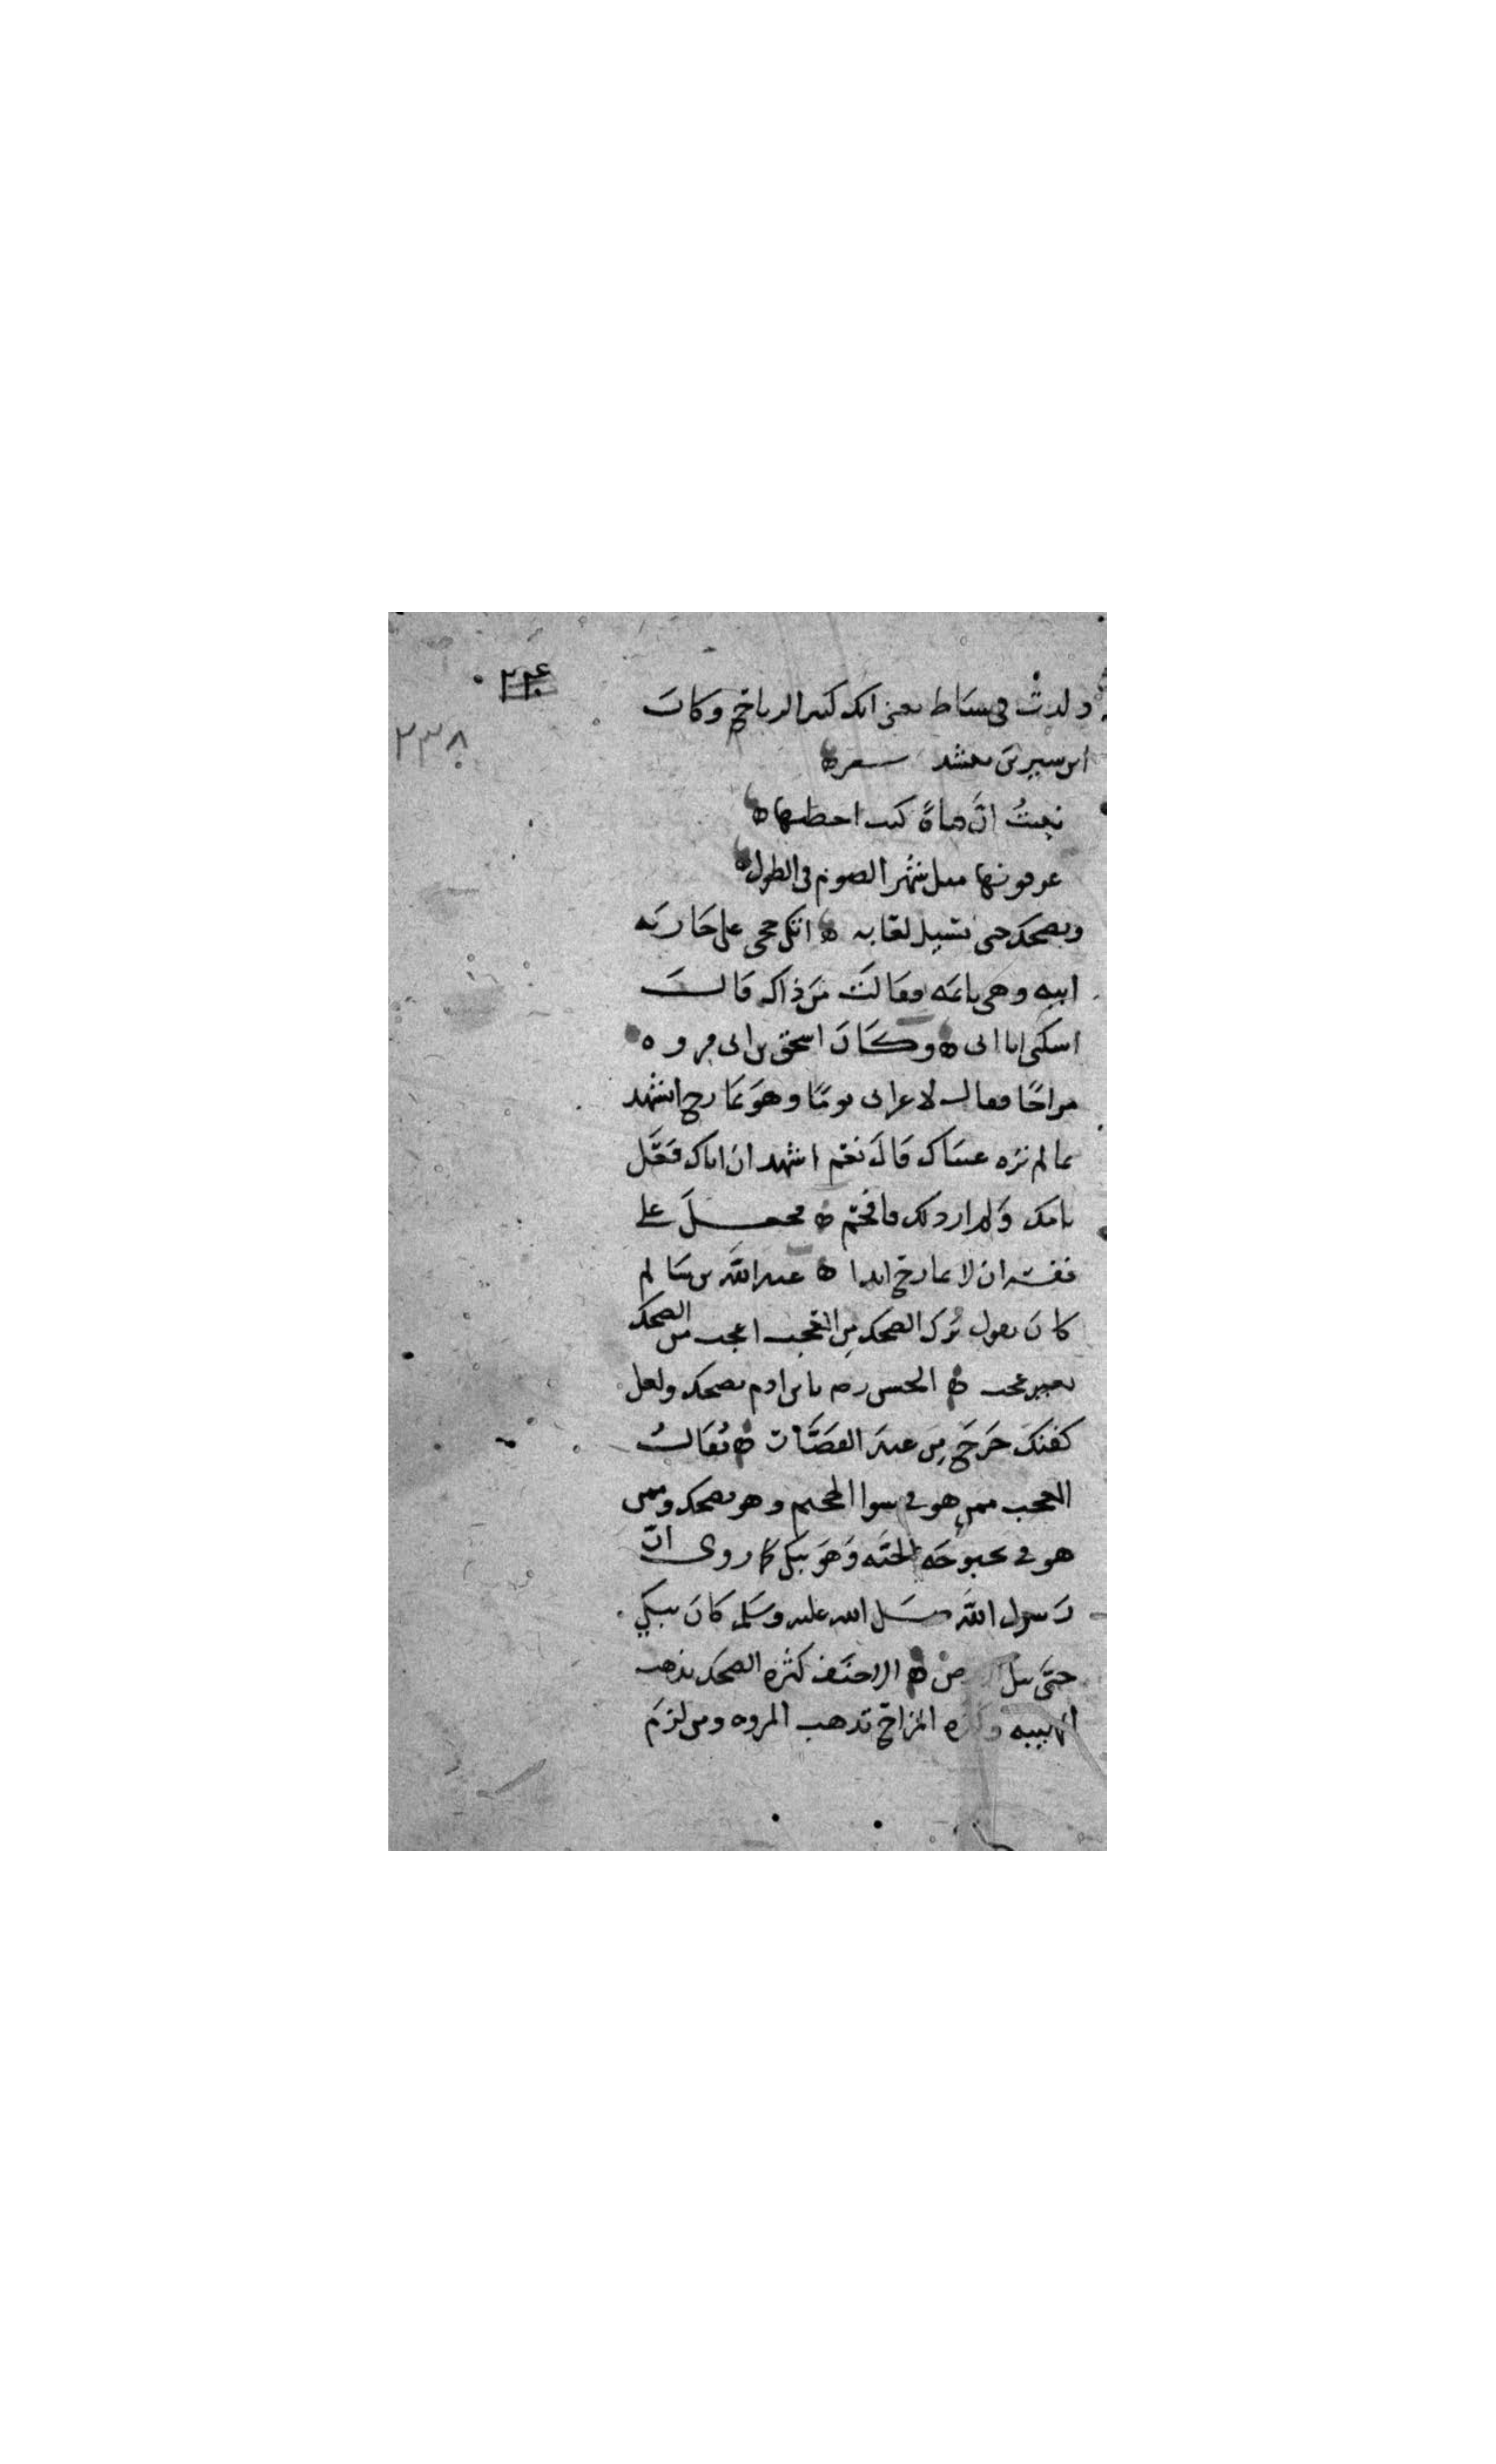 ٢٢٤
٢٣٨
ولدت في بساط يعني انك كثير المزاح وكان
ابن سيرين ينشد شعر
نبئت ان فتاة كنت اخطبها
عرقوبها مثل شهر الصوم في الطول
ويضحك حتى تسيل لعابه اتكى جحى على جارية
ابيه وهي نائمة فقالت من ذاك قالت
اسكتي انا ابي وكان اسحق بن ابي فروه
مزاحا فقال لاعرابي يوما وهو يمازح اتشهد
بما لم تره عيناك قال نعم اشهد ان اباك فعل
بامك ولم ار ذلك فافحم فجعل على
نفسه ان لا يمازح ابدا عبد الله بن سالم
كان يقول ترك الضحك من العجب اعجب من الضحك
بغير عجب الحسن رح يا ابن ادم تضحك ولعل
كفنك خرج من عند القصار يقال
العجب ممن هو في سوا الجحيم وهو يضحك وممن
هو في بحبوحة الجنة وهو يبكي كما روي ان
رسول الله صلى الله عليه وسلم كان يبكي
حتى يبل الاحنف كثرة الضحك تذهب
الهيبه وكثره المزاح تذهب المروه ومن لزم